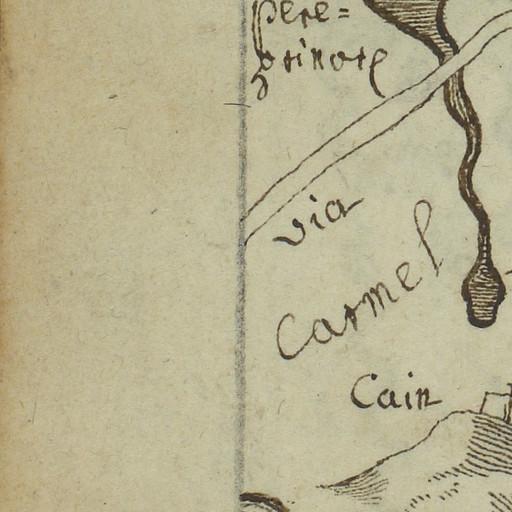 Pere=
grinorū
via
Carmel
Cain